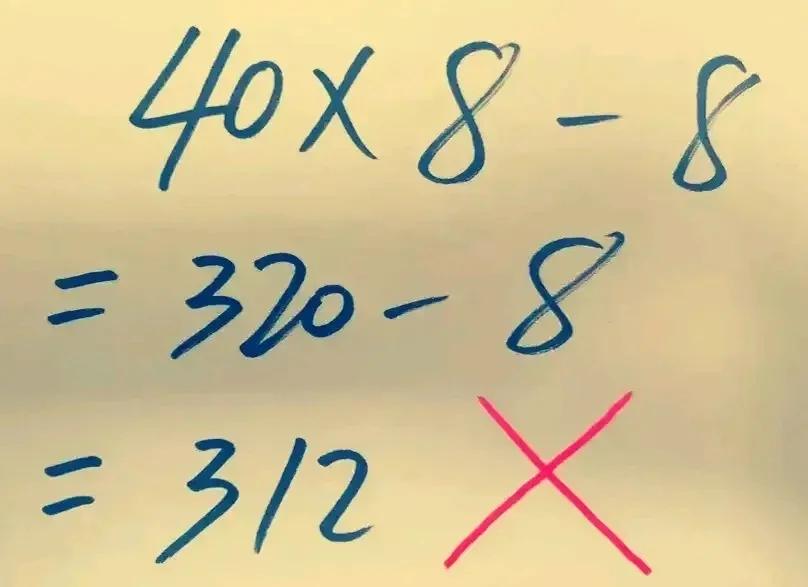 40×8-8
=320-8
=312